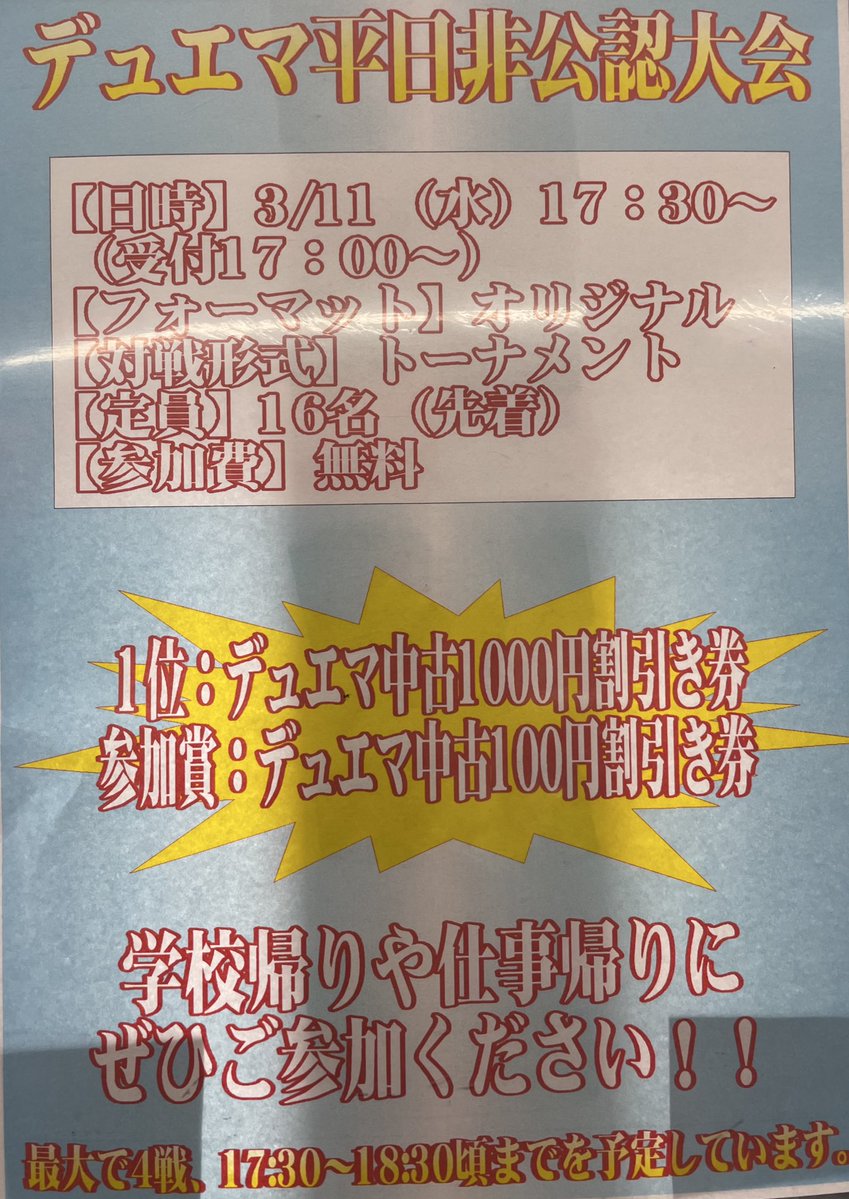 デュエマ平日非公認大会
【日時】3/11（水）17：30〜
（受付17：00〜）
【フォーマット】オリジナル
【対戦形式】トーナメント
【定員】16名（先着）
【参加費】無料
1位：デュエマ中古1000円割引き券
参加賞：デュエマ中古100円割引き券
学校帰りや仕事帰りに
ぜひご参加ください！！
最大で4戦、17:30〜18:30頃までを予定しています。